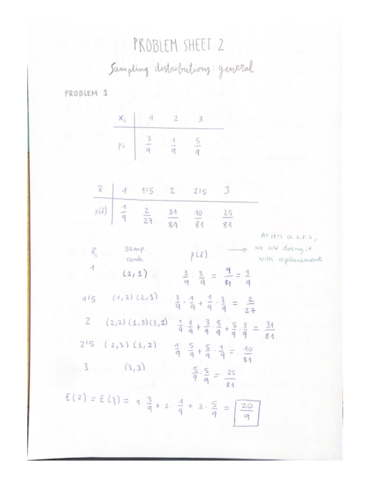 PROBLEM SHEET 2
Sampling distributions: general
PROBLEM 1
Xi 1 2 3
Pi 3/9 1/9 5/9
x̄ 1 1'5 2 2'5 3
p(x̄) 1/9 2/27 31/81 10/81 25/81
x̄ samp. comb p(x̄) → As it is a s.r.s, we are doing it with replacement
1 (1,1) 3/9 · 3/9 = 9/81 = 3/9
1'5 (1,2) (2,1) 3/9 · 1/9 + 1/9 · 3/9 = 2/27
2 (2,2) (1,3) (3,1) 1/9 · 1/9 + 3/9 · 5/9 + 5/9 · 3/9 = 31/81
2'5 (2,3) (3,2) 1/9 · 5/9 + 5/9 · 1/9 = 10/81
3 (3,3) 5/9 · 5/9 = 25/81
E(x̄) = E(ξ) = 1 · 3/9 + 2 · 1/9 + 3 · 5/9 = 20/9